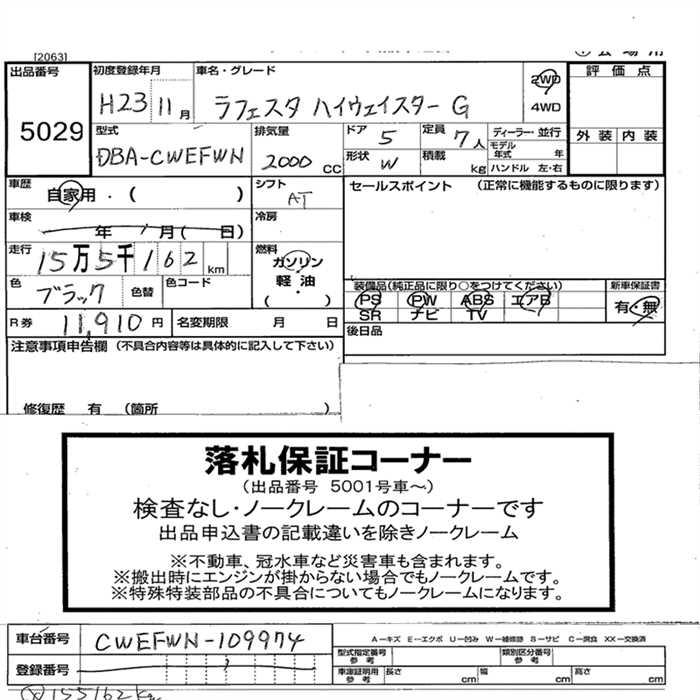 [2063]
出品番号 初度登録年月 車名・グレード 2WD 評価点
5029 H23 11月 ラフェスタ ハイウェイスター G 4WD
型式 排気量 ドア 5 定員 7人 ディーラー・並行 外装 内装
DBA-CWEFWN 2000cc 形状 W 積載 kg モデル年式 年 ハンドル 左・右
車歴 自家用・( ) シフト AT セールスポイント (正常に機能するものに限ります)
車検 年 月( 日) 冷房
走行 15万5千162km 燃料 ガソリン 軽油 ( ・ )
色 ブラック 色替 色コード 装備品(純正品に限り○をつけてください) 新車保証書
PS PW ABS エアB 有・無
SR ナビ TV
R券 11,910円 名変期限 月 日 後日品
注意事項申告欄 (不具合内容等は具体的に記入して下さい)
修復歴 有 (箇所 )
落札保証コーナー
(出品番号 5001号車~)
検査なし・ノークレームのコーナーです
出品申込書の記載違いを除きノークレーム
※不動車、冠水車など災害車も含まれます。
※搬出時にエンジンが掛からない場合でもノークレームです。
※特殊特装部品の不具合についてもノークレームになります。
車台番号 CWEFWN-109974 A-キズ E-エクボ U-凹み W-補修跡 S-サビ C-腐食 XX-交換済
型式指定番号 参考 類別区分番号 参考
登録番号 車庫証明用 参考 長さ cm 幅 cm 高さ cm
155162km